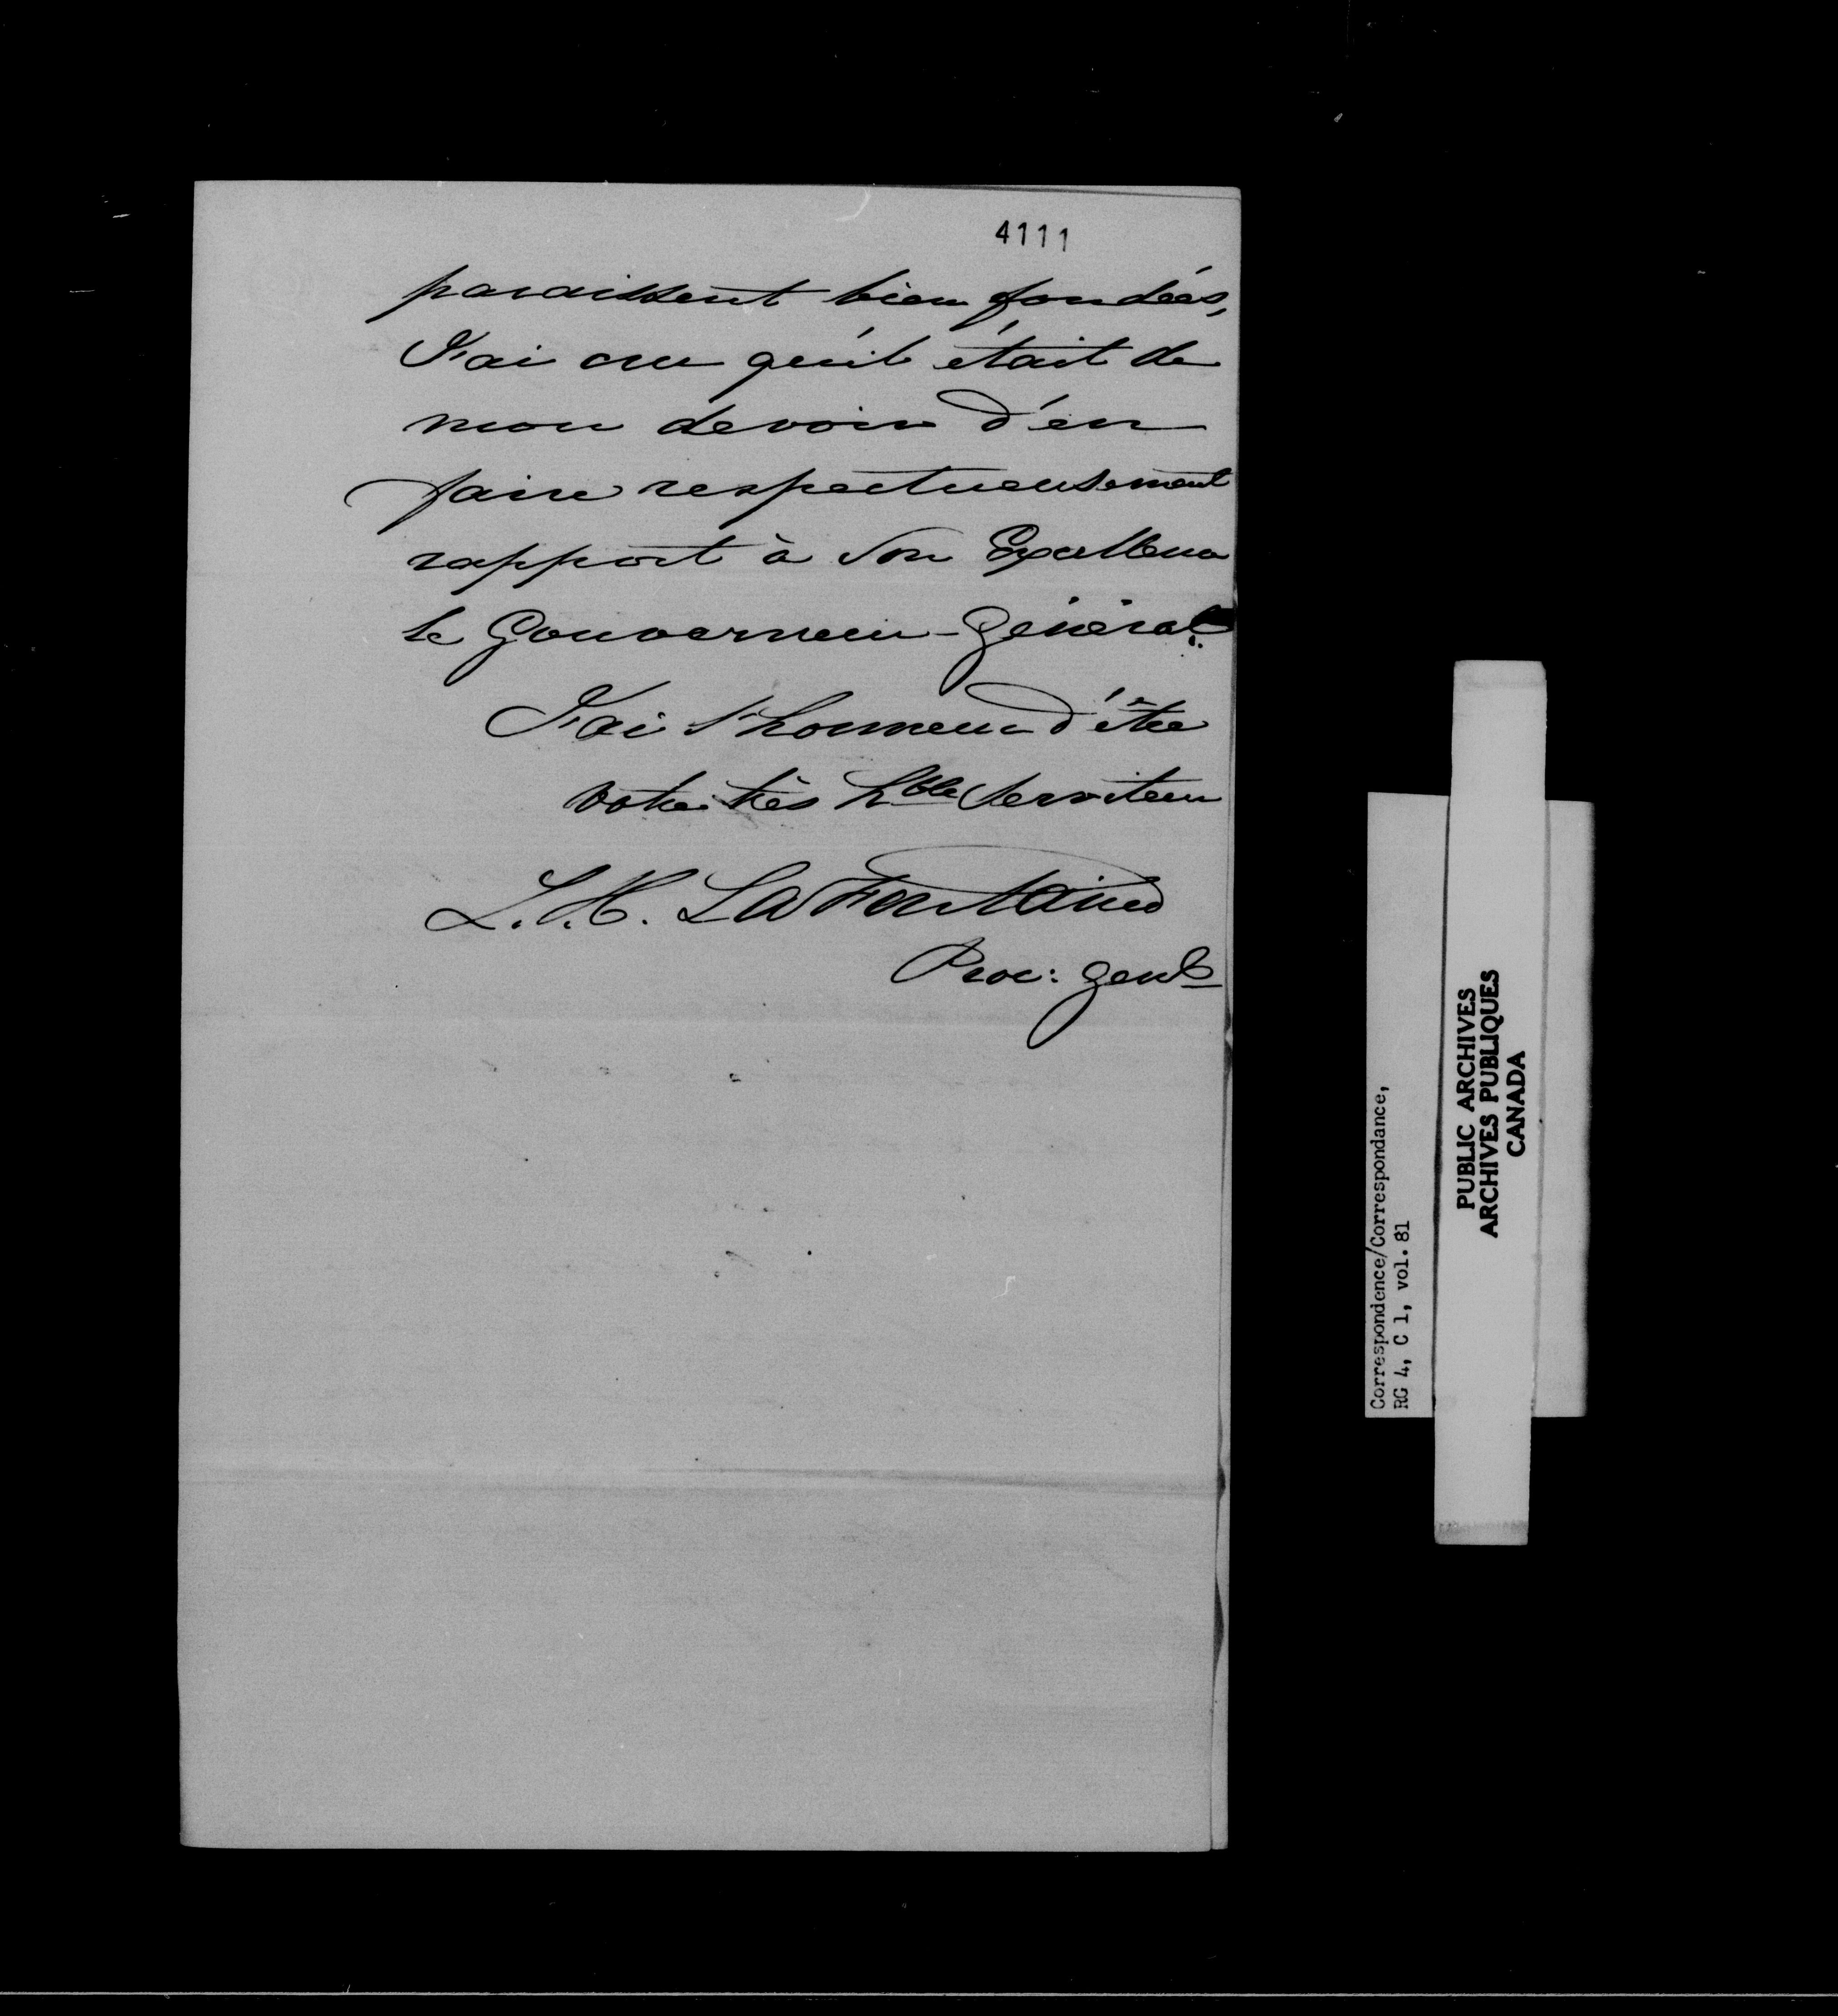 4111
paraissent bien fondées,
J'ai cru qu'il était de
mon devoir d'en
faire respectueusement
rapport à Son Excellence
le Gouverneur-Général.
J'ai l'honneur d'être
votre très hble Serviteur
L. H. LaFontaine
Proc: genl
Correspondence/Correspondance,
RG 4, C 1, vol. 81
PUBLIC ARCHIVES
ARCHIVES PUBLIQUES
CANADA